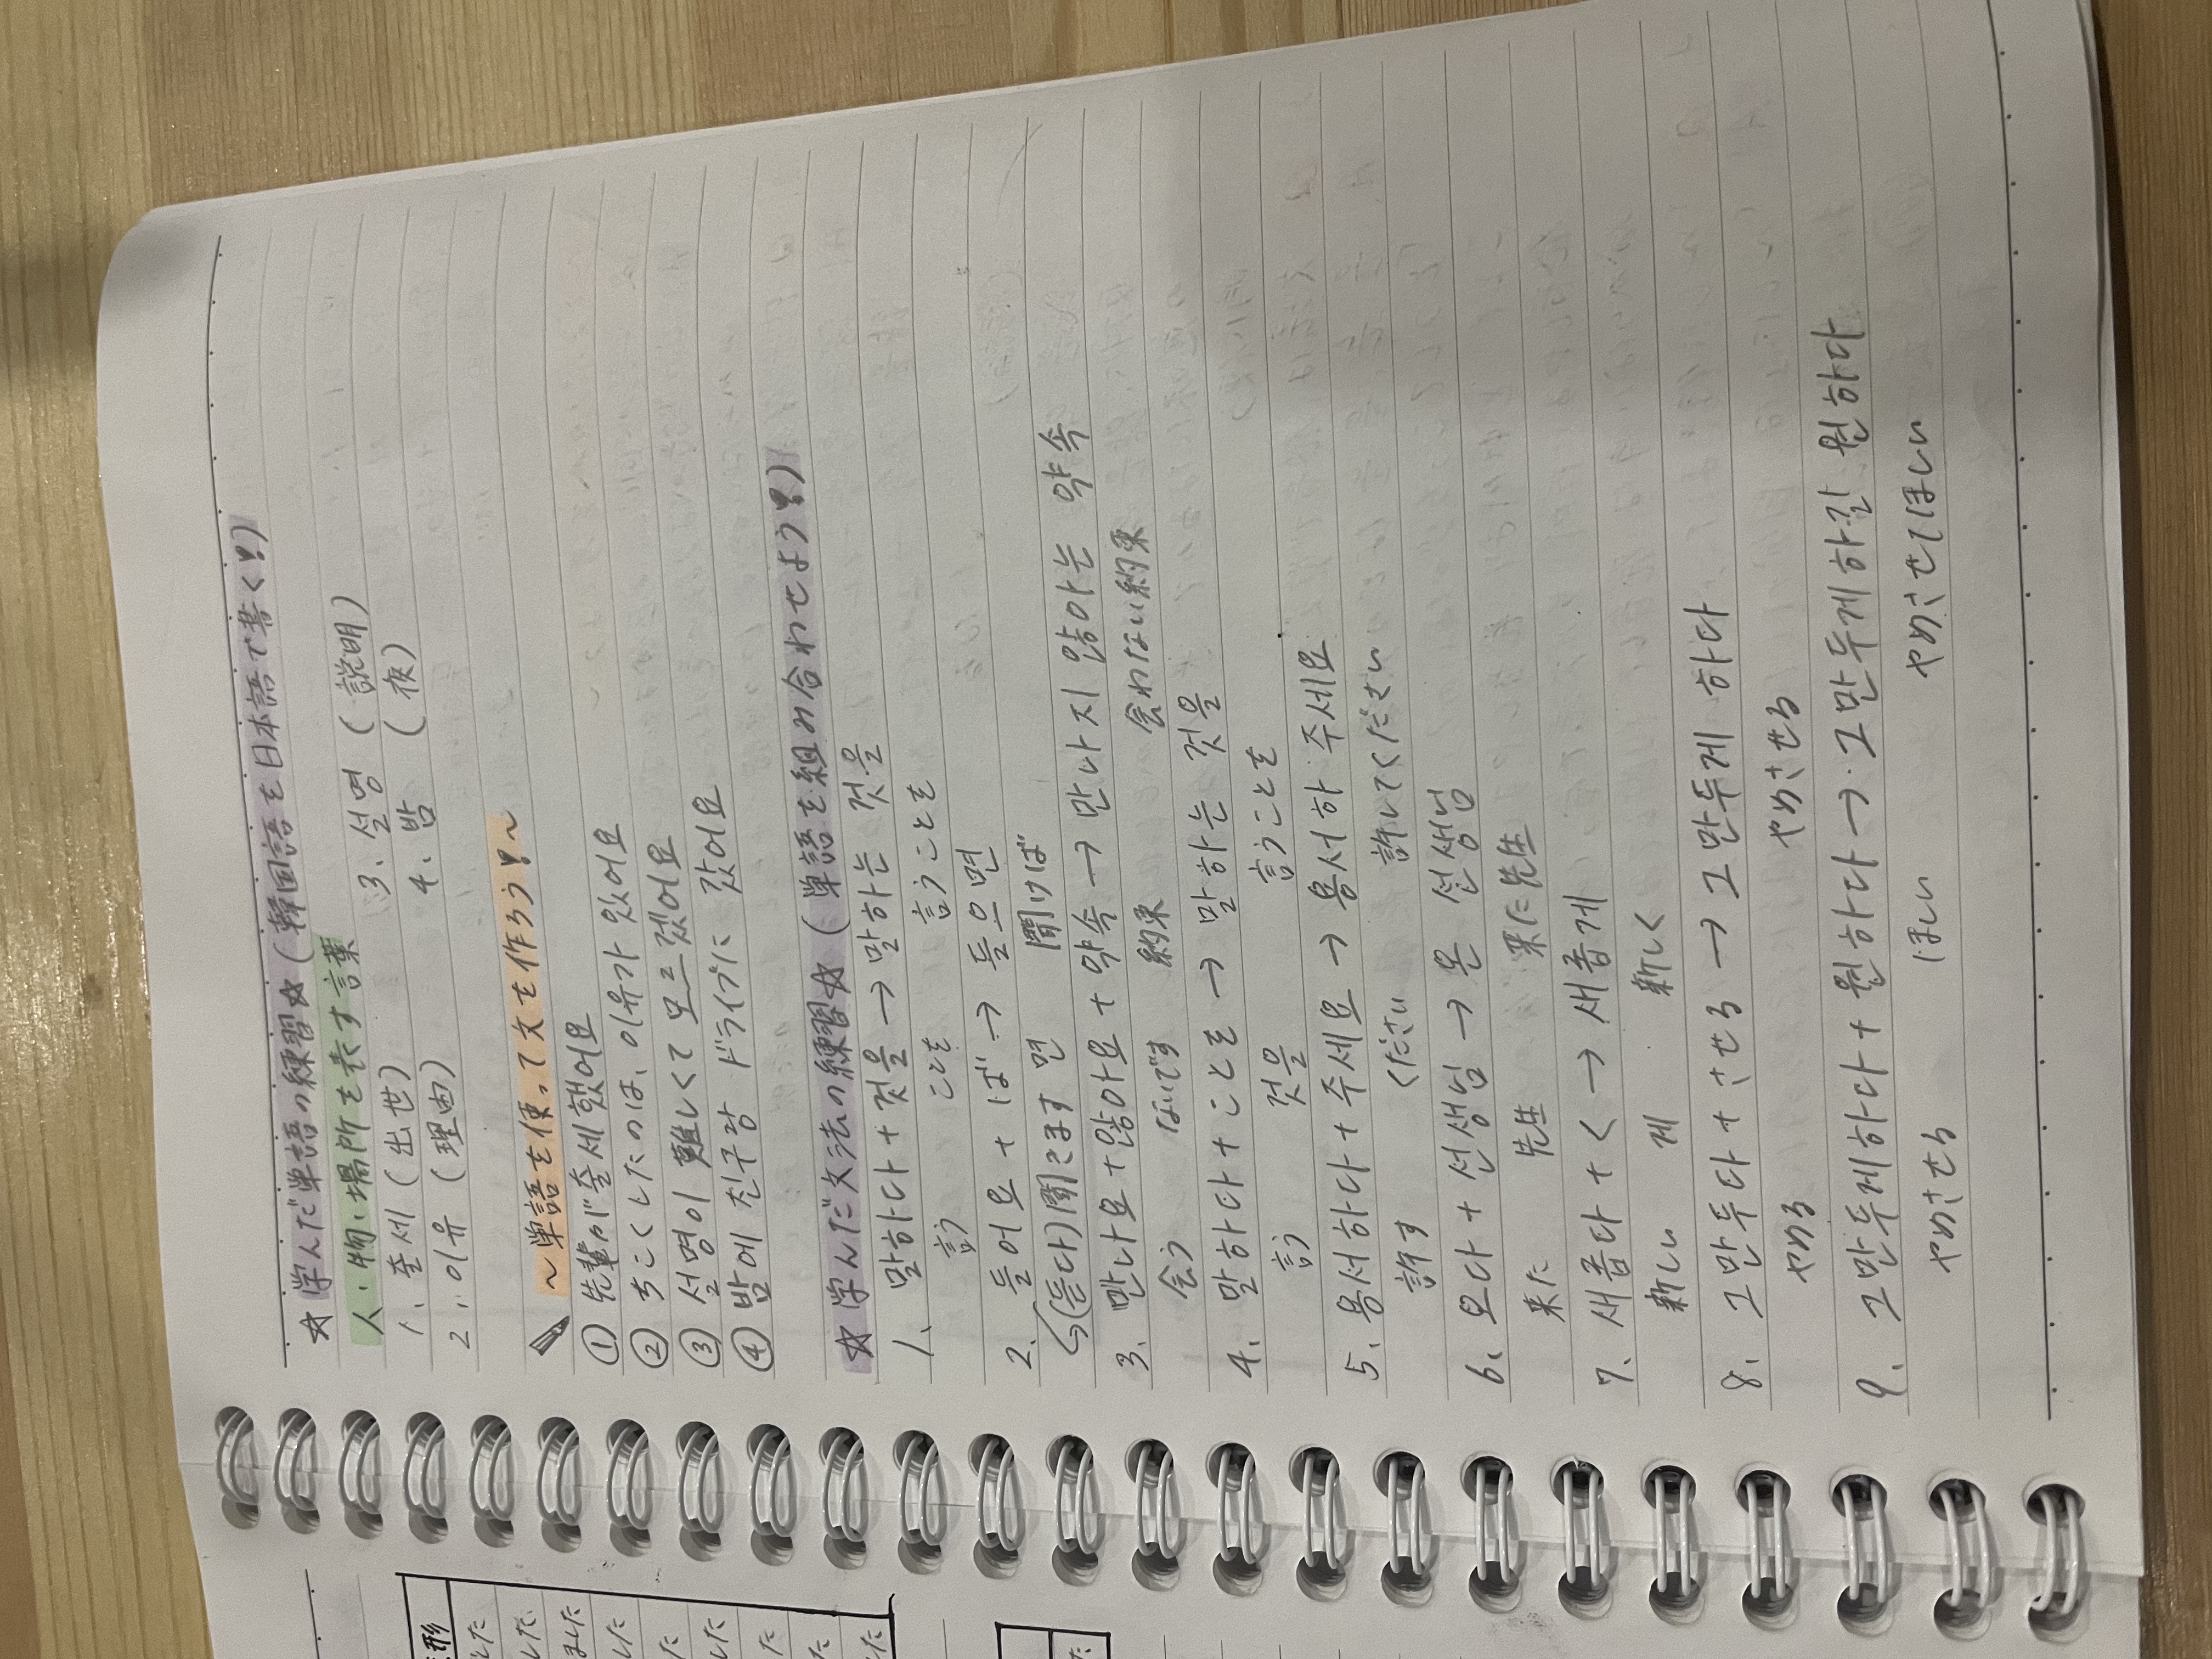 ☆学んだ単語の練習☆(韓国語を日本語で書く!)
人、物、場所を表す言葉
1、출세 (出世) 3、설명 (説明)
2、이유 (理由) 4、밤 (夜)
～単語を使って文を作ろう!～
① 先輩が출세했어요
② ちこくしたのは、이유가 있어요
③ 설명이 難しくて 모르겠어요
④ 밤에 친구랑 ドライブに 갔어요
☆学んだ文法の練習☆(単語を組み合わせよう!)
1、말하다 + 것을 → 말하는 것을
言う ことを 言うことを
2、들어요 + ば → 들으면
↳(듣다)聞きます 면 聞けば
3、만나요 + 않아요 + 약속 → 만나지 않아는 약속
会う ないです 約束 会わない約束
4、말하다 + ことを → 말하는 것을
言う 것을 言うことを
5、용서하다 + 주세요 → 용서하 주세요
許す ください 許してください
6、오다 + 선생님 → 온 선생님
来た 先生 来た先生
7、새롭다 + く → 새롭게
新しい 게 新しく
8、그만두다 + させる → 그만두게 하다
やめる やめさせる
9、그만두게하다 + 원하다 → 그만두게하길 원하다
やめさせる ほしい やめさせてほしい
形
した
した
ました
した
た
した
た
た
た
た